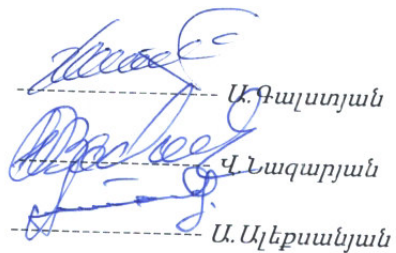 Ա.Գալստյան
Վ.Նազարյան
Ա.Ալեքսանյան